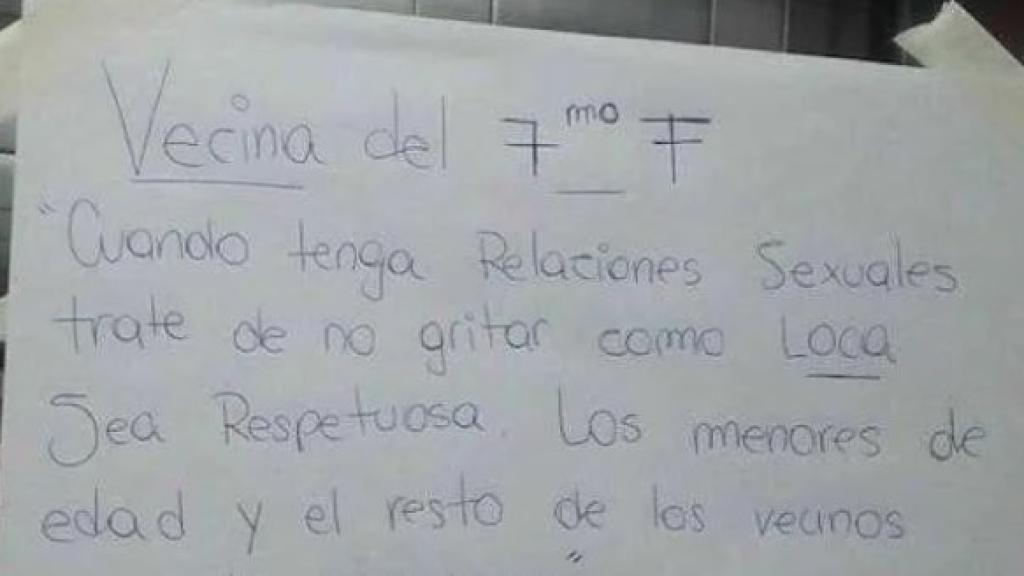 Vecina del 7mo F
"Cuando tenga Relaciones Sexuales
trate de no gritar como Loca
Sea Respetuosa. Los menores de
edad y el resto de los vecinos
"